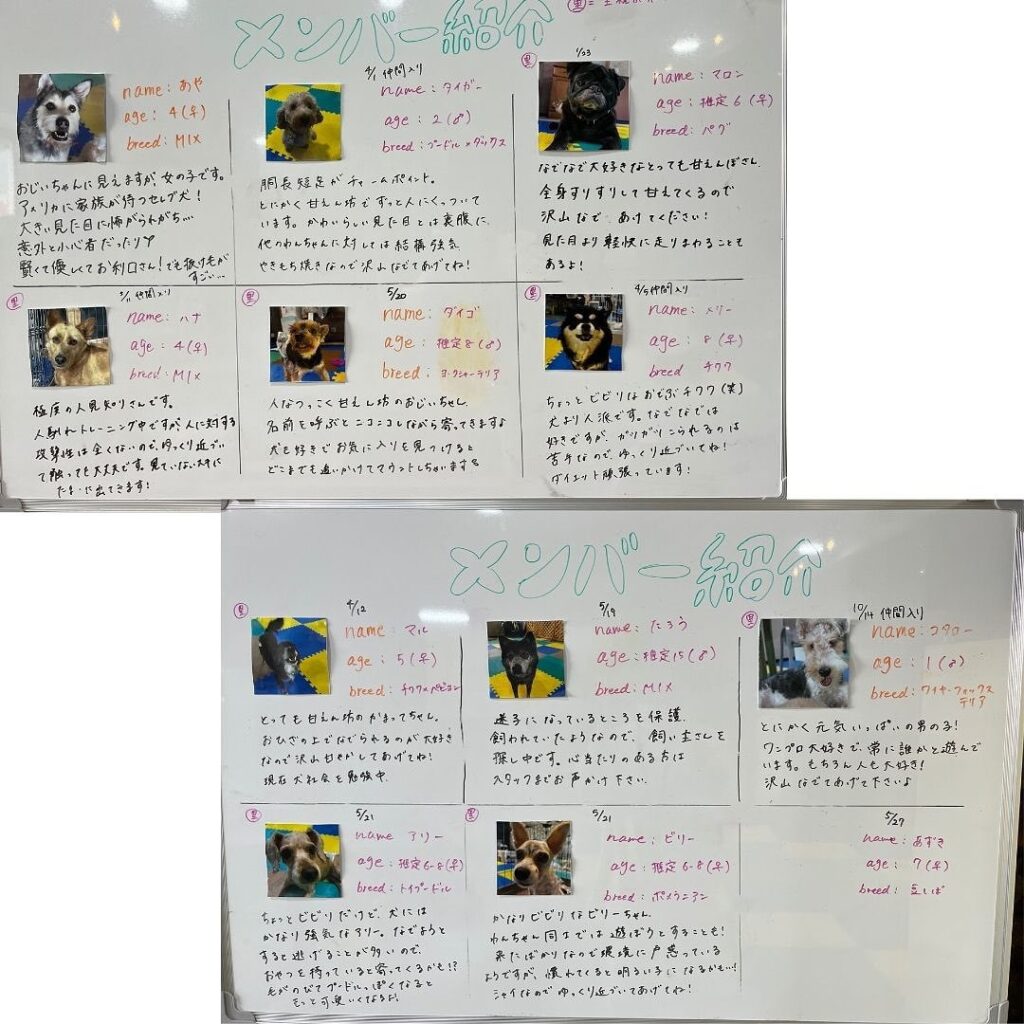 メンバー紹介
name: あや
age: 4(♀)
breed: MIX
おじいちゃんに見えますが、女の子です。
アメリカに家族が待つセレブ犬!
大きい見た目に怖がられがち…
意外と小心者だったり♡
賢くて優しくてお利口さん!でも抜け毛が
すごい…
4/1 仲間入り
name: タイガー
age: 2(♂)
breed: プードル×ダックス
胴長短足がチャームポイント。
とにかく甘えん坊でずっと人にくっついて
います。かわいらしい見た目とは裏腹に、
他のわんちゃんに対しては結構強気
やきもち焼きなので沢山なでてあげてね!
里
1/23
name: マロン
age: 推定6(♀)
breed: パグ
なでなで大好きなとっても甘えんぼさん。
全身すりすりして甘えてくるので
沢山なでてあげてください!
見た目より軽快に走りまわることも
あるよ!
里
仲間入り
name: ハナ
age: 4(♀)
breed: MIX
極度の人見知りさんです。
人馴れトレーニング中ですが、人に対する
攻撃性は全くないので、ゆっくり近づい
て触っても大丈夫です。見ていない時に
たまに出てきます!
里
5/20
name: ダイゴ
age: 推定8(♂)
breed: ヨークシャーテリア
人なつっこく甘えん坊のおじいちゃん。
名前を呼ぶとニコニコしながら寄ってきますよ
犬も好きでお気に入りを見つけると
どこまでも追いかけてマウントしちゃいます
里
4/5 仲間入り
name: メリー
age: 8(♀)
breed チワワ
ちょっとビビリなおでぶチワワ(笑)
犬より人派です。なでなでは
好きですが、ガツガツこられるのは
苦手なので、ゆっくり近づいてね!
ダイエット頑張っています!
メンバー紹介
里
4/12
name: マル
age: 5(♀)
breed: チワワ×パピヨン
とっても甘えん坊のかまってちゃん。
おひざの上でなでられるのが大好き
なので沢山甘やかしてあげてね!
現在犬社会を勉強中。
5/19
name: たろう
age: 推定15(♂)
breed: MIX
迷子になっているところを保護。
飼われていたようなので、飼い主さんを
探し中です。心当たりのある方は
スタッフまでお声かけ下さい。
里
10/14 仲間入り
name: コタロー
age: 1(♂)
breed: ワイヤーフォックス
テリア
とにかく元気いっぱいの男の子!
ワンプロ大好きで、常に誰かと遊んで
います。もちろん人も大好き!
沢山なでてあげて下さいよ
里
5/21
name アリー
age: 推定6-8(♀)
breed: トイプードル
ちょっとビビリだけど、犬には
かなり強気なアリー。なでようと
すると逃げることが多いので、
おやつを持っていると寄ってくるかも!?
毛がのびてプードルっぽくなると
もっと可愛いくなるよ!
里
5/21
name: ビリー
age: 推定6-8(♀)
breed: ポメラニアン
かなりビビリなビリーちゃん。
わんちゃん同士では遊ぼうとすることも!
来たばかりなので環境に戸惑っている
ようですが、慣れてくると明るい子になるかも…!
シャイなのでゆっくり近づいてあげてね!
5/27
name: あずき
age: 7(♀)
breed: 豆しば